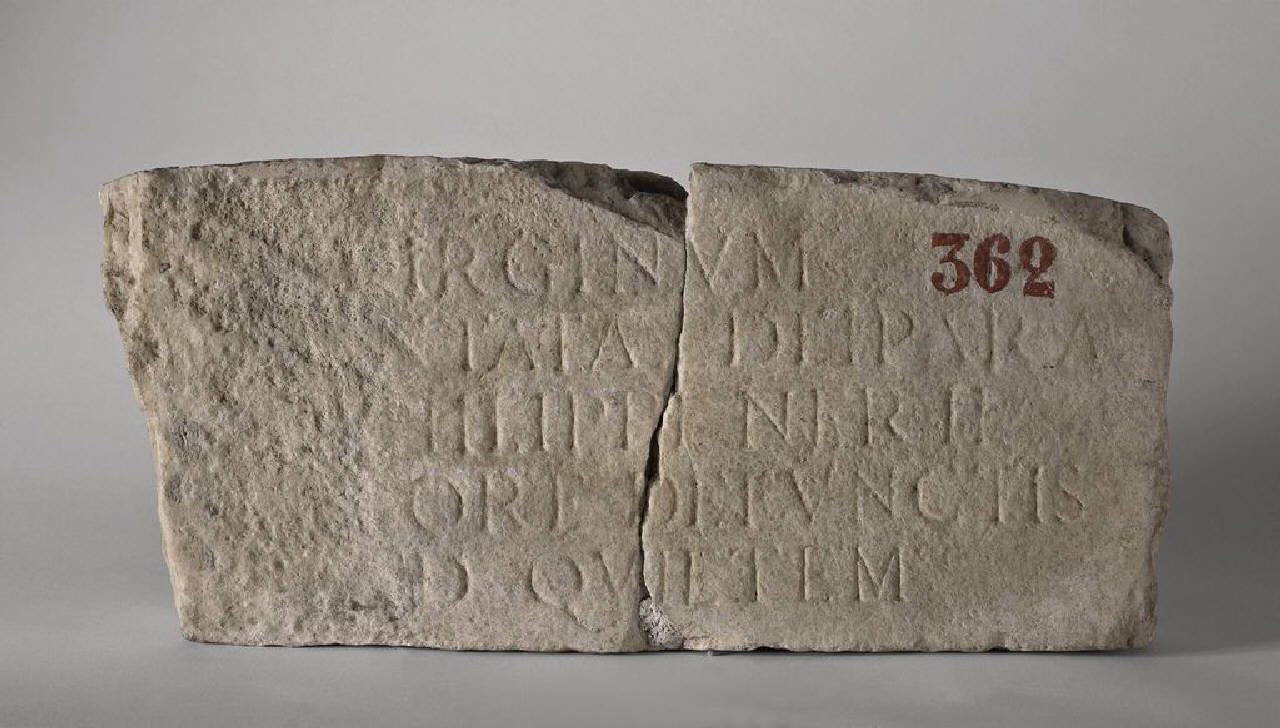 IRGINVM 362
TATA DEIPARA
ILIPPI NERII
ORE DEFVNCTIS
D QVIETEM